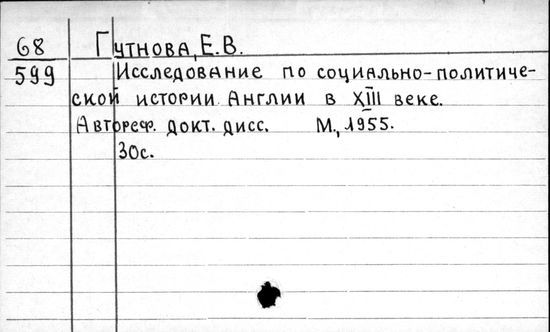 68 Гутнова, Е.В.
599 Исследование по социально-политиче-
ской истории Англии в XIII веке.
Автореф. докт. дисс. М., 1955.
30с.